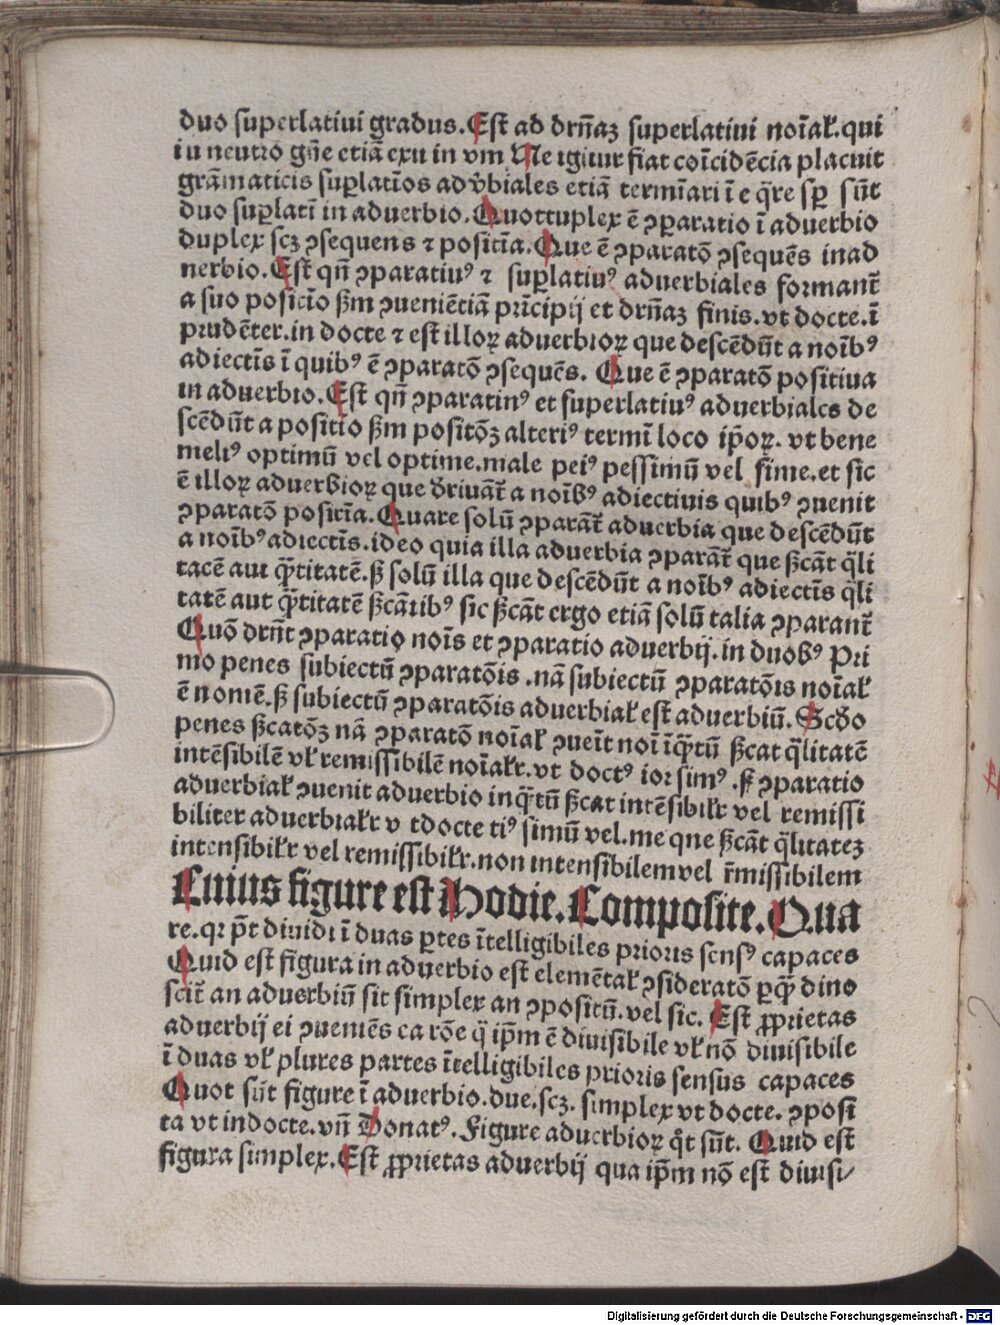 duo superlatiui gradus. Est ad drñaꝫ superlatiui noīaꝉ. qui
in neutro gñe etiā exit in vm Ne igitur fiat coīcidēcia placuit
grāmaticis suꝑlatīos adv̄biales etiā termīari ī e q̄re sꝑ sūt
duo suꝑlatī in aduerbio. Quottuplex ē ꝯparatio ī aduerbio
duplex scꝫ ꝯsequens ⁊ positīa. Que ē ꝯparatō ꝯsequēs in ad
uerbio. Est qñ ꝯparatiuꝰ ⁊ suꝑlatiuꝰ aduerbiales formant᷑
a suo positīo ẜm ꝯueniētiā prīcipij et drñaꝫ finis. vt docte. ī
prudēter. in docte ⁊ est illoꝝ aduerbioꝝ que descēdūt a noībꝰ
adiectīs ī quibꝰ ē ꝯparatō ꝯsequēs. Que ē ꝯparatō positiua
in aduerbio. Est qñ ꝯparatiuꝰ et superlatiuꝰ aduerbiales de
scēdūt a positīo ẜm positōꝫ alteriꝰ termī loco ip̄oꝝ. vt bene
meliꝰ optimū vel optime. male peiꝰ pessimū vel sime. et sic
ē illoꝝ aduerbioꝝ que d̄riuāt᷑ a noībꝰ adiectiuis quibꝰ ꝯuenit
ꝯparatō positīa. Quare solū ꝯparāt᷑ aduerbia que descēdūt
a noībꝰ adiectīs. ideo quia illa aduerbia ꝯparāt᷑ que ẜcāt q̄li
tatē aut q̄titatē. ẜ solū illa que descēdūt a noībꝰ adiectīs q̄li
tatē aut q̄titatē ẜcātibꝰ sic ẜcāt ergo etiā solū talia ꝯparant᷑
Quō drñt ꝯparatio noīs et ꝯparatio aduerbij. in duobꝰ Pri
mo penes subiectū ꝯparatōis. nā subiectū ꝯparatōis noīaꝉ
ē nomē. ẜ subiectū ꝯparatōis aduerbiaꝉ est aduerbiū. Scd̄o
penes ẜcatōꝫ nā ꝯparatō noīaꝉ ꝯueīt noī īq̄tū ẜcat q̄litatē
intēsibilē vꝉ remissibilē noīaꝉr. vt doctꝰ ior simꝰ. ẜ ꝯparatio
aduerbiaꝉ ꝯuenit aduerbio inq̄tū ẜcat intēsibiꝉr vel remissi
biliter aduerbiaꝉr v tdocte tiꝰ simū vel. me que ẜcāt q̄litatez
intensibiꝉr vel remissibiꝉr. non intensibilem vel r̄missibilem
Cuius figure est Hodie. Composite. Qua
re. qꝛ p̄t diuidi ī duas ꝑtes ītelligibiles prioris sensꝰ capaces
Quid est figura in aduerbio est elemētaꝉ ꝯsideratō ꝑq̄ dino
scit᷑ an aduerbiū sit simplex an ꝯpositū. vel sic. Est ꝓprietas
aduerbij ei ꝯueniēs ea rōe q̄ ip̄m ē diuisibile vꝉ nō diuisibile
ī duas vꝉ plures partes ītelligibiles prioris sensus capaces
Quot sūt figure ī aduerbio. due. scꝫ. simplex vt docte. ꝯposi
ta vt indocte. vñ Donatꝰ. Figure aduerbioꝝ q̄t sūt. Quid est
figura simplex. Est ꝓprietas aduerbij qua ip̄m nō est diuisi/
Digitalisierung gefördert durch die Deutsche Forschungsgemeinschaft - DFG